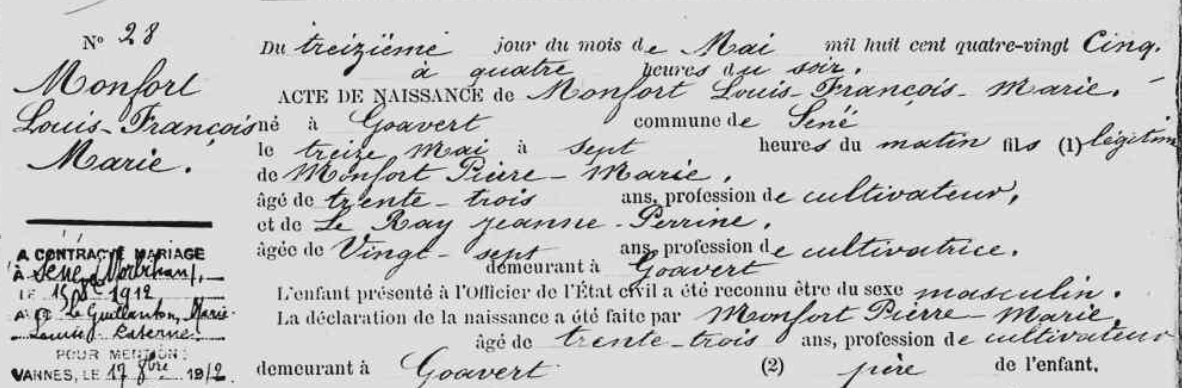 N° 28
Monfort
Louis-François
Marie.
A CONTRACTÉ MARIAGE
À Séné (Morbihan),
LE 1912
à Le Guillanton, Marie-
Louise
POUR MENTION:
VANNES, LE 17 8bre 1912.
Du treizième jour du mois de Mai mil huit cent quatre-vingt Cinq.
à quatre heures du soir.
ACTE DE NAISSANCE de Monfort Louis-François-Marie.
né à Goavert commune de Séné
le treize Mai à sept heures du matin fils (1) légitim
de Monfort Pierre-Marie.
âgé de trente-trois ans, profession de cultivateur,
et de Le Ray Jeanne-Perrine.
âgée de Vingt-sept ans, profession de cultivatrice.
demeurant à Goavert
L'enfant présenté à l'Officier de l'État civil a été reconnu être du sexe masculin.
La déclaration de la naissance a été faite par Monfort Pierre-Marie,
âgé de trente-trois ans, profession de cultivateur
demeurant à Goavert (2) père de l'enfant.